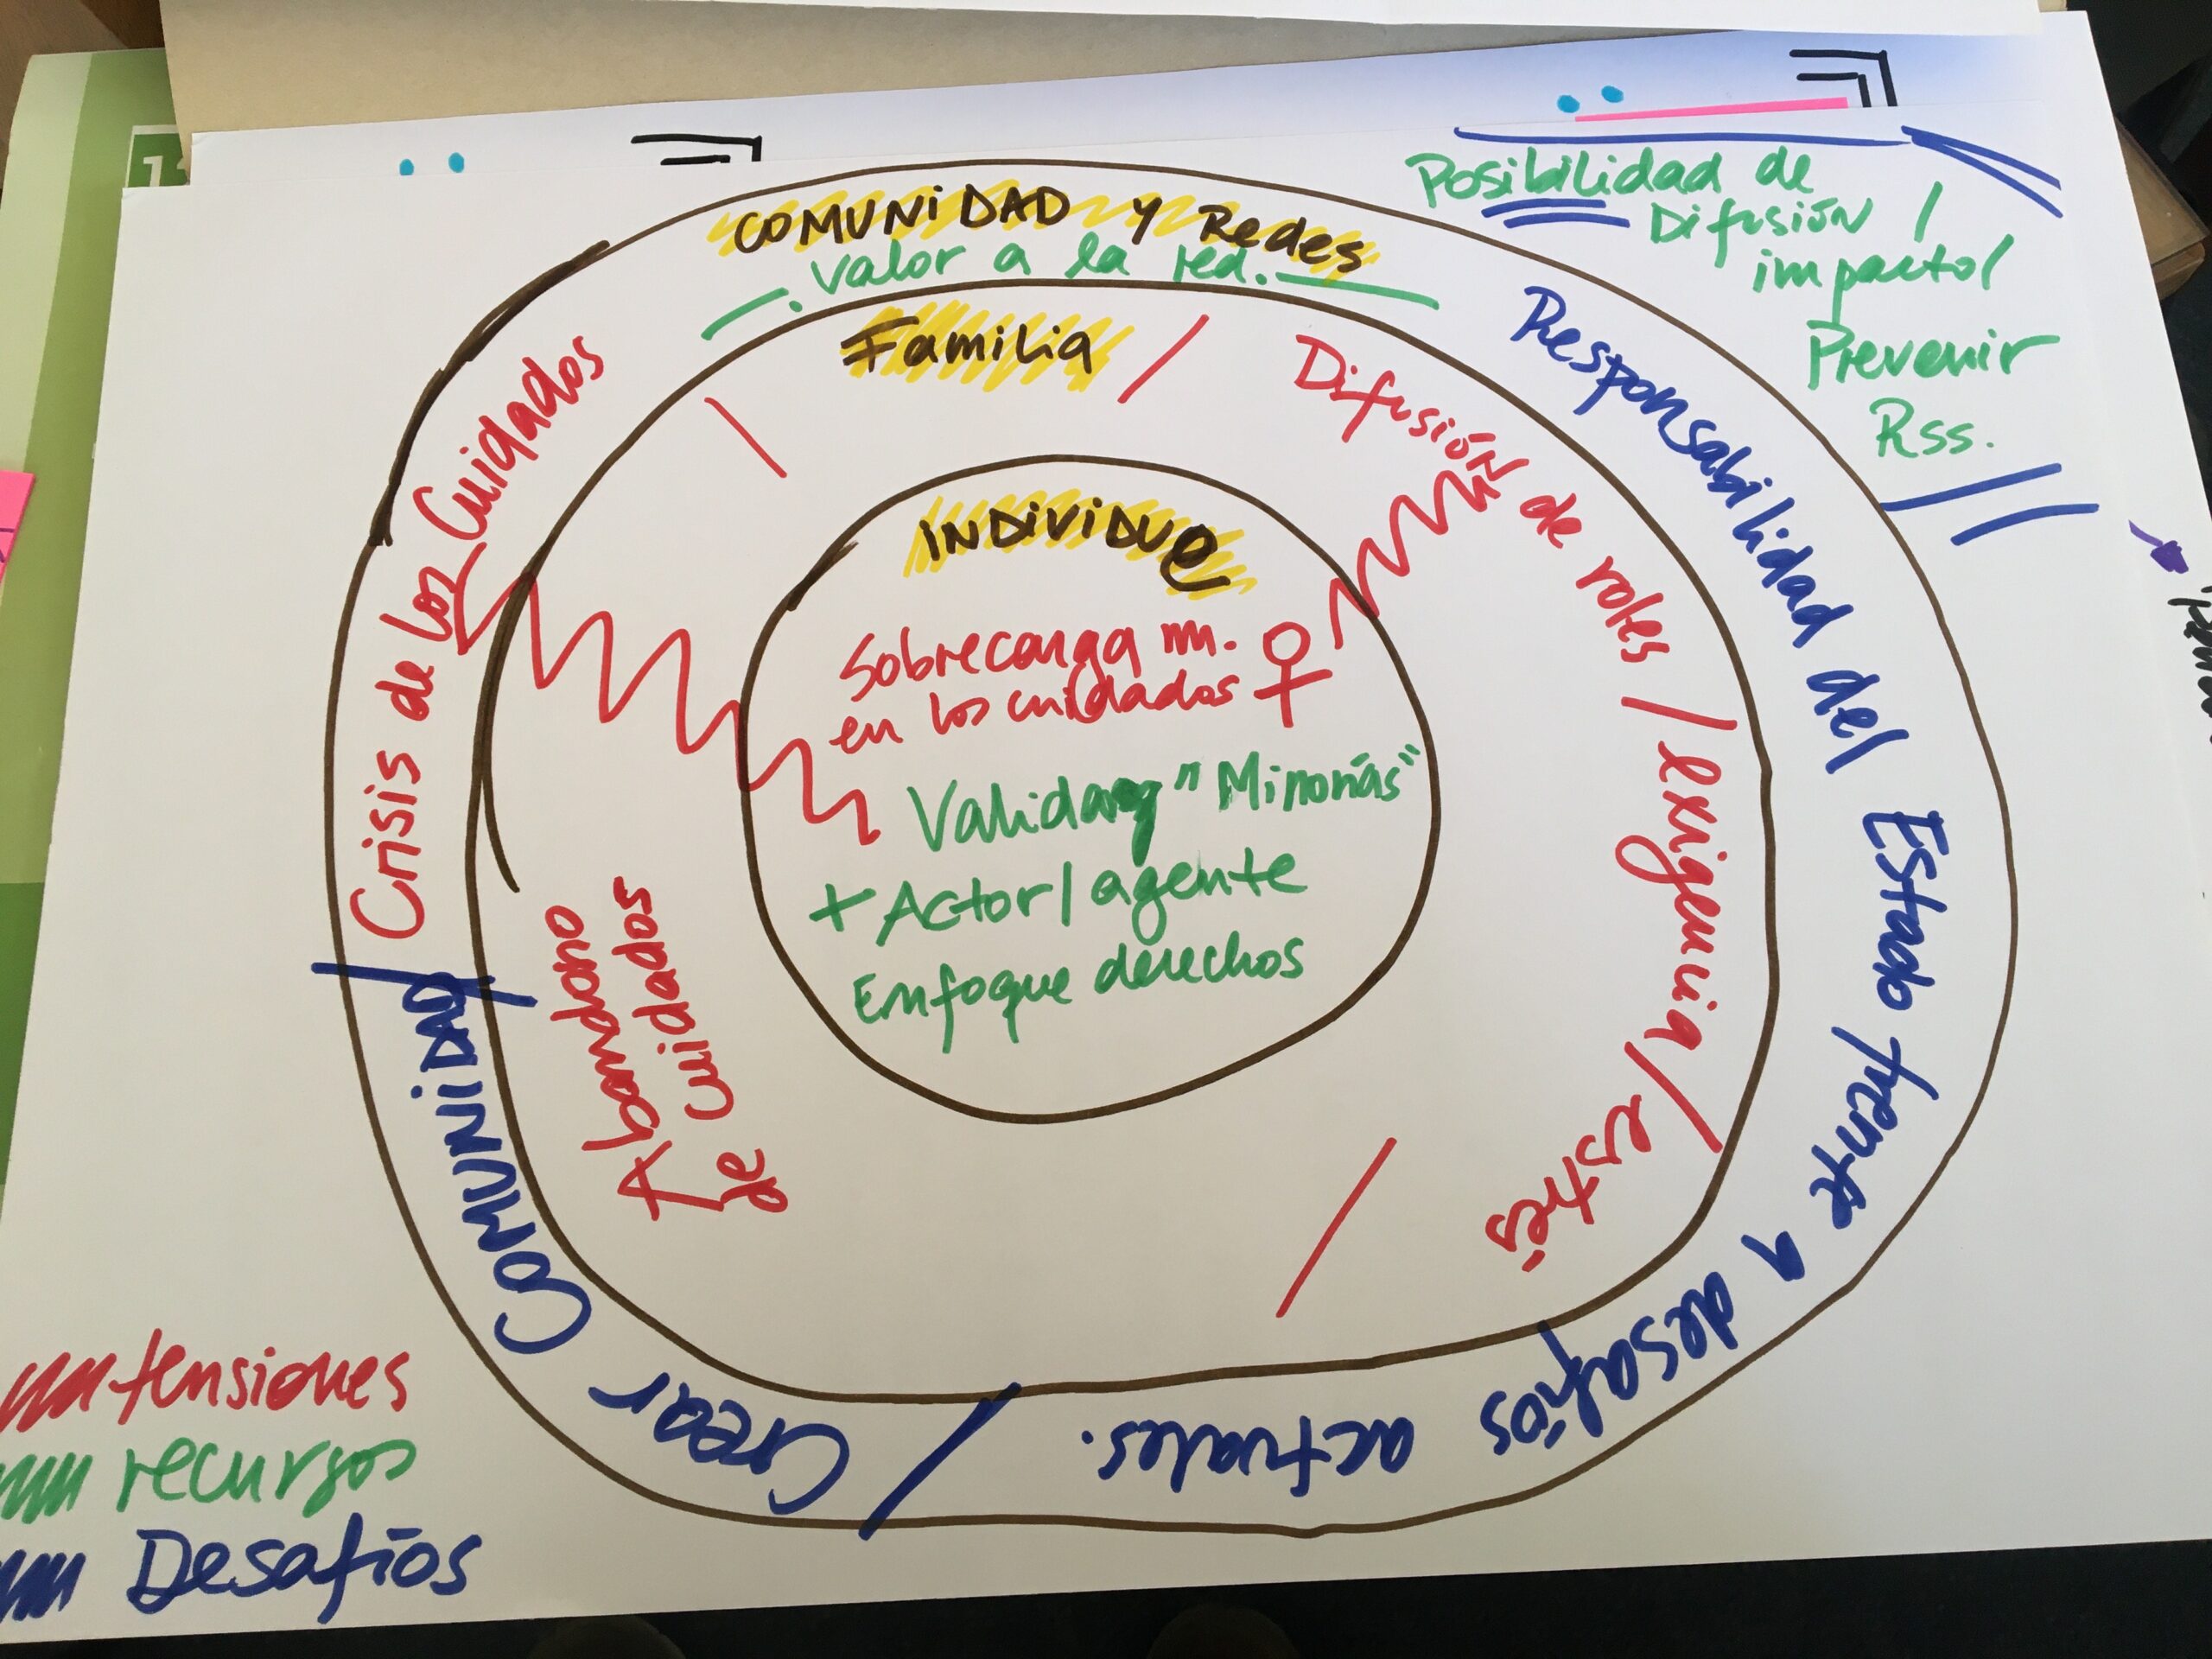 COMUNIDAD Y Redes
. valor a la red.
Familia
INDIVIDUe
Sobrecarga m.
en los cuidados ♀
"Minorías"
+ Actor/agente
Enfoque derechos
Difusión de roles / exigencia / estrés
Abandono
de cuidados
Crisis de los Cuidados
Responsabilidad del Estado frente a desafíos actuales.
/ Crear COMUNIDAD /
Posibilidad de
Difusión /
impacto/
Prevenir
Rss.
tensiones
recursos
Desafíos